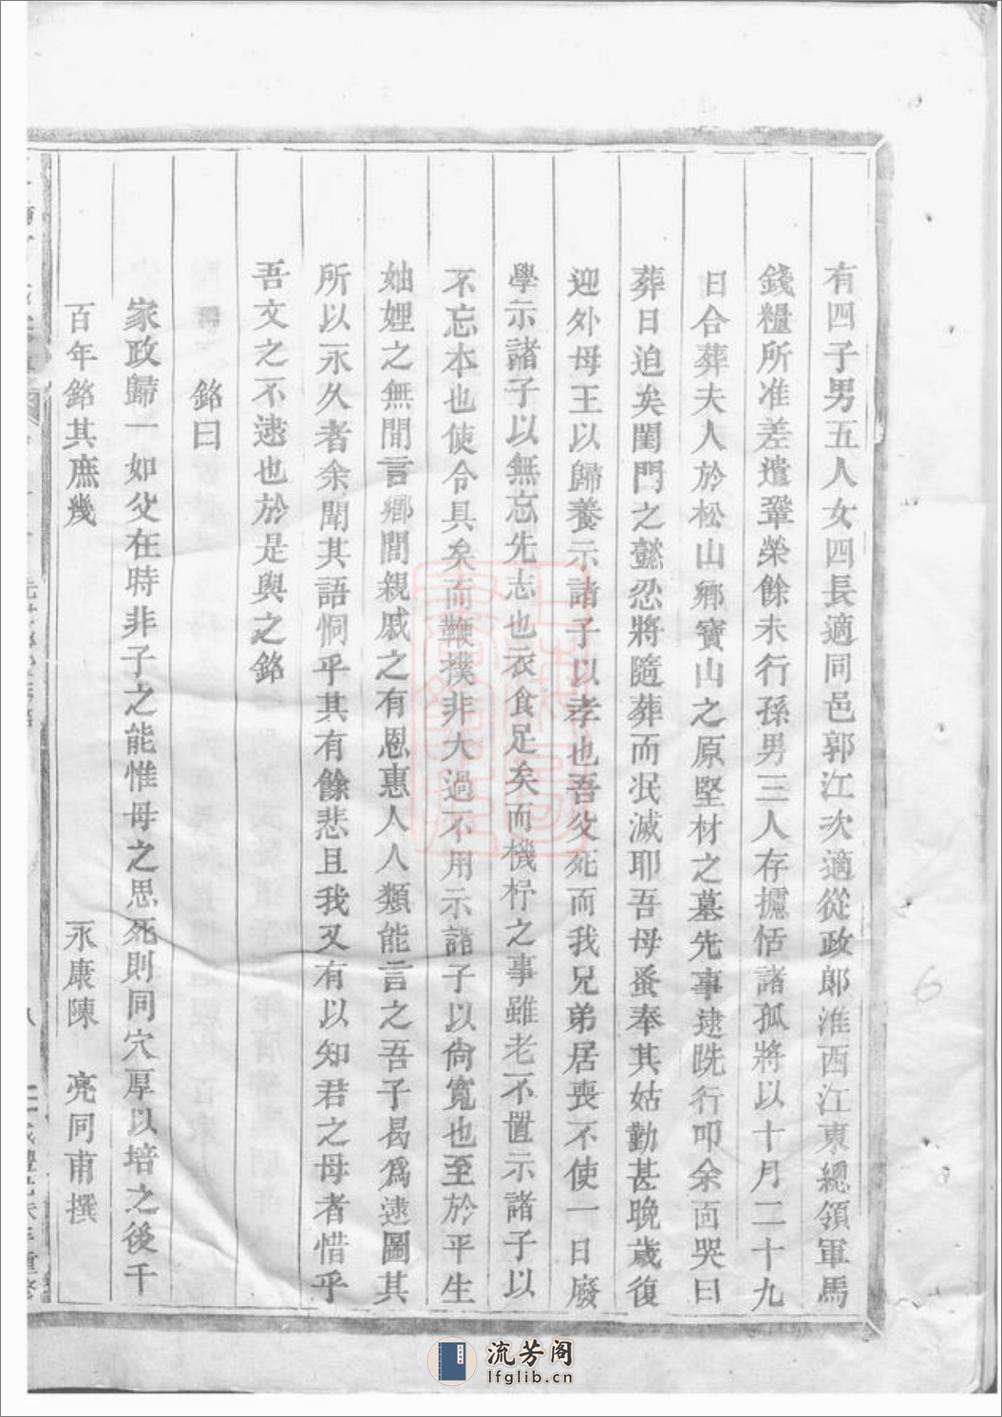 有四子男五人女四長適同邑郭江次適從政郎淮西江東總領軍馬
錢糧所准差遣鞏榮餘未行孫男三人存攄恬諸孤將以十月二十九
日合葬夫人於松山鄉寶山之原堅材之墓先事逮既行叩余面哭曰
葬日迫矣閨門之懿忍將隨葬而泯滅耶吾母蚤奉其姑勤甚晚歲復
迎外母王以歸養示諸子以孝也吾父死而我兄弟居喪不使一日廢
學示諸子以無忘先志也衣食足矣而機杼之事雖老不置示諸子以
不忘本也使令具矣而鞭撲非大過不用示諸子以尚寬也至於平生
妯娌之無間言鄉閭親戚之有恩惠人人類能言之吾子曷為逮圖其
所以永久者余聞其語恫乎其有餘悲且我又有以知君之母者惜乎
吾文之不逮也於是與之銘
銘曰
家政歸一如父在時非子之能惟母之思死則同穴厚以培之後千
百年銘其庶幾　永康陳　亮同甫撰
流芳阁
lfglib.cn
6